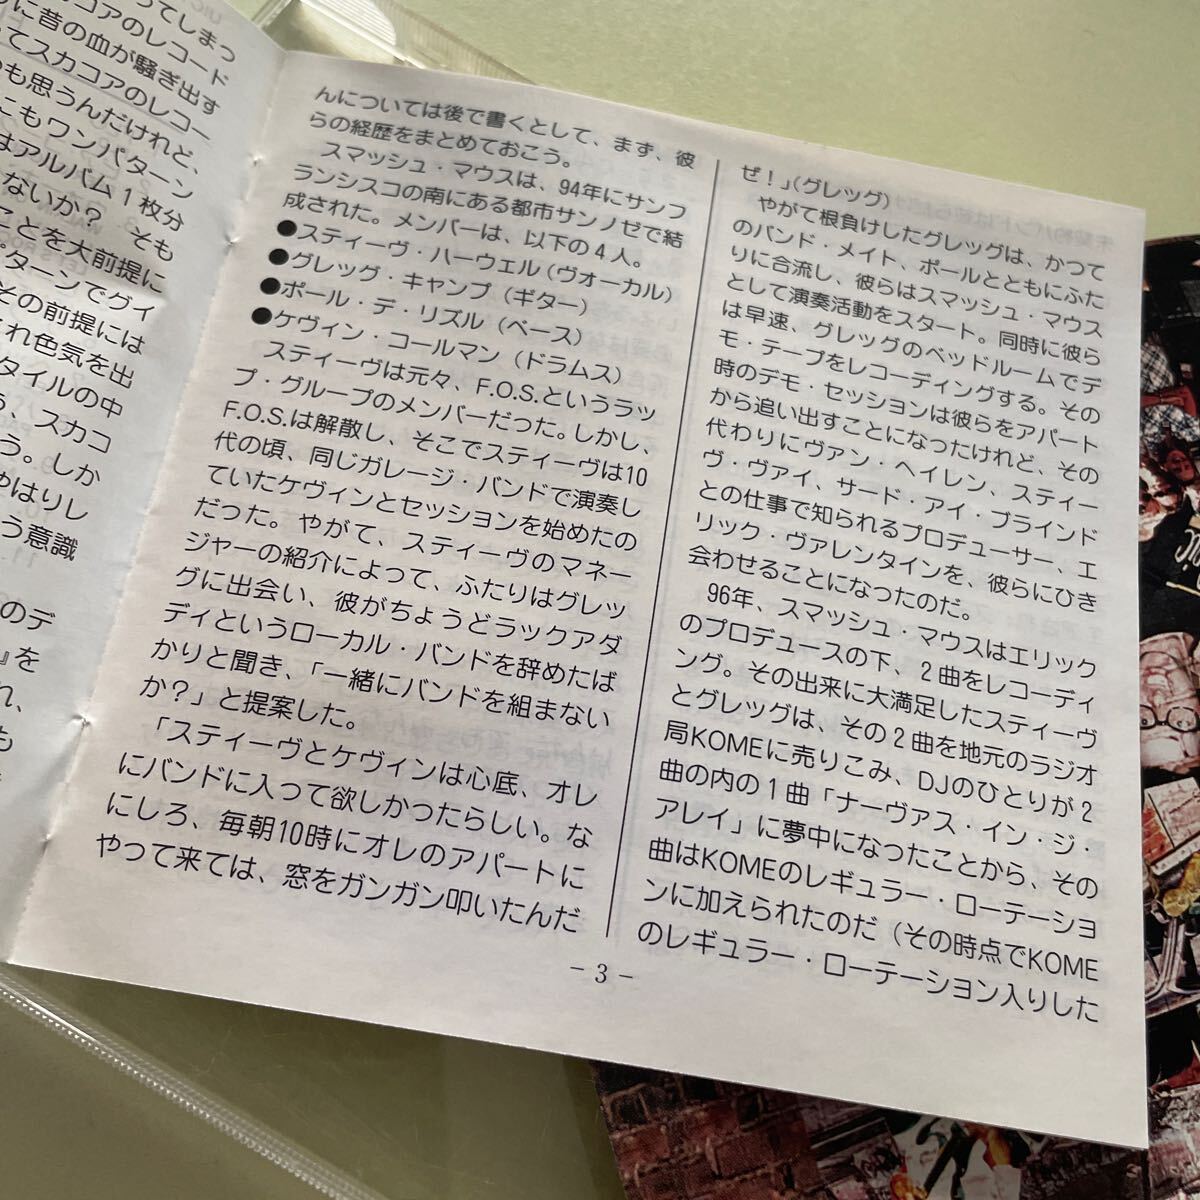 てしまっ
コアのレコード
に昔の血が騒ぎ出す
てスカコアのレコー
も思うんだけれど、
にもワンパターン
はアルバム1枚分
ないか？ そも
ことを大前提に
ターンでグイ
その前提には
れ色気を出
タイルの中
、スカコ
う。しか
やはりし
う意識
のデ
』を
れ、
も
んについては後で書くとして、まず、彼
らの経歴をまとめておこう。
スマッシュ・マウスは、94年にサンフ
ランシスコの南にある都市サンノゼで結
成された。メンバーは、以下の4人。
●スティーヴ・ハーウェル（ヴォーカル）
●グレッグ・キャンプ（ギター）
●ポール・デ・リズル（ベース）
●ケヴィン・コールマン（ドラムス）
スティーヴは元々、F.O.S.というラッ
プ・グループのメンバーだった。しかし、
F.O.S.は解散し、そこでスティーヴは10
代の頃、同じガレージ・バンドで演奏し
ていたケヴィンとセッションを始めたの
だった。やがて、スティーヴのマネー
ジャーの紹介によって、ふたりはグレッ
グに出会い、彼がちょうどラックアダ
ディというローカル・バンドを辞めたば
かりと聞き、「一緒にバンドを組まない
か？」と提案した。
「スティーヴとケヴィンは心底、オレ
にバンドに入って欲しかったらしい。な
にしろ、毎朝10時にオレのアパートに
やって来ては、窓をガンガン叩いたんだ
ぜ！」（グレッグ）
やがて根負けしたグレッグは、かつて
のバンド・メイト、ポールとともにふた
りに合流し、彼らはスマッシュ・マウス
として演奏活動をスタート。同時に彼ら
は早速、グレッグのベッドルームでデ
モ・テープをレコーディングする。その
時のデモ・セッションは彼らをアパート
から追い出すことになったけれど、その
代わりにヴァン・ヘイレン、スティー
ヴ・ヴァイ、サード・アイ・ブラインド
との仕事で知られるプロデューサー、エ
リック・ヴァレンタインを、彼らにひき
会わせることになったのだ。
96年、スマッシュ・マウスはエリック
のプロデュースの下、2曲をレコーディ
ング。その出来に大満足したスティーヴ
とグレッグは、その2曲を地元のラジオ
局KOMEに売りこみ、DJのひとりが2
曲の内の1曲「ナーヴァス・イン・ジ・
アレイ」に夢中になったことから、その
曲はKOMEのレギュラー・ローテーショ
ンに加えられたのだ（その時点でKOME
のレギュラー・ローテーション入りした
－3－